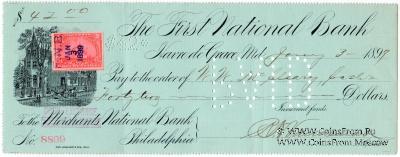 $ 42.00
The First National Bank
Havre de Grace, Md. Jany 3 1899
N.N.E.
JAN
3
1899
Pay to the order of W. W.
Forty two Dollars,
In current funds
To the Merchants National Bank
Philadelphia
No. 8809
© www.CoinsFrom.Ru
CoinsFromMoscow